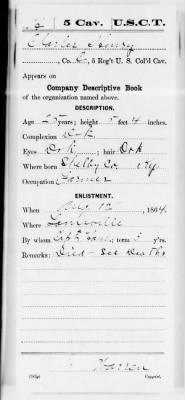 5 Cav. U.S.C.T.
Charles Henry
, Co. , 5 Reg't U. S. Col'd Cav.
Appears on
Company Descriptive Book
of the organization named above.
DESCRIPTION.
Age 25 years; height 5 feet 4 inches.
Complexion Dark
Eyes Dark; hair Dark
Where born Shelby Co. Ky.
Occupation Farmer
ENLISTMENT.
When Aug. 12, 1864.
Where Louisville
By whom Capt. ; term 3 y'rs.
Remarks: Died - See Deaths
Copyist.